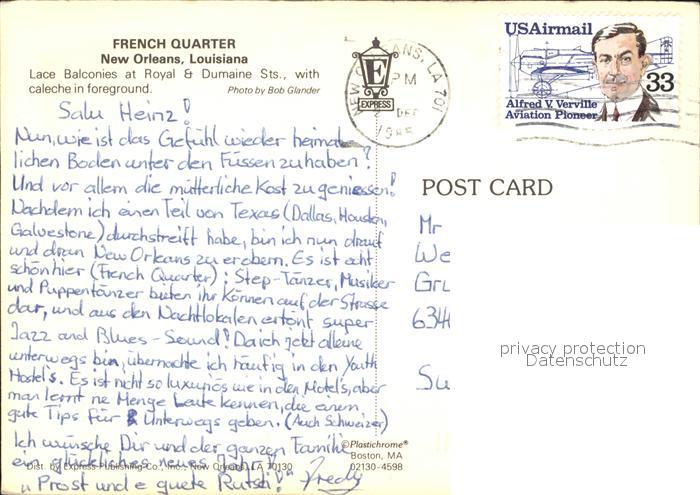 FRENCH QUARTER
New Orleans, Louisiana
Lace Balconies at Royal & Dumaine Sts., with
caleche in foreground. Photo by Bob Glander
E
EXPRESS
NEW ORLEANS, LA 701
PM
DEC
1985
USAirmail
33
Alfred V. Verville
Aviation Pioneer
Salu Heinz!
Nun, wie ist das Gefühl wieder heimat-
lichen Boden unter den Füssen zu haben?
Und vor allem die mütterliche Kost zu geniessen!
Nachdem ich einen Teil von Texas (Dallas, Houston,
Galvestone) durchstreift habe, bin ich nun drauf
und dran New Orleans zu erobern. Es ist echt
schön hier (French Quarter); Step-Tänzer, Musiker
und Puppentänzer bieten ihr Können auf der Strasse
dar, und aus den Nachtlokalen ertönt super
Jazz and Blues-Sound! Da ich jetzt alleine
unterwegs bin, übernachte ich häufig in den Youth
Hostel's. Es ist nicht so luxuriös wie in den Motel's, aber
man lernt ne Menge Leute kennen, die einem
gute Tips für Unterwegs geben. (Auch Schweizer)
Ich wünsche Dir und der ganzen Familie
ein glückliches neues Jahr!
"Prost und e guete Rutsch!" Fredy
POST CARD
Mr
We
Gru
6344
Su
privacy protection
Datenschutz
©Plastichrome®
Boston, MA
02130-4598
Dist. by Express Publishing Co., Inc., New Orleans, LA 70130